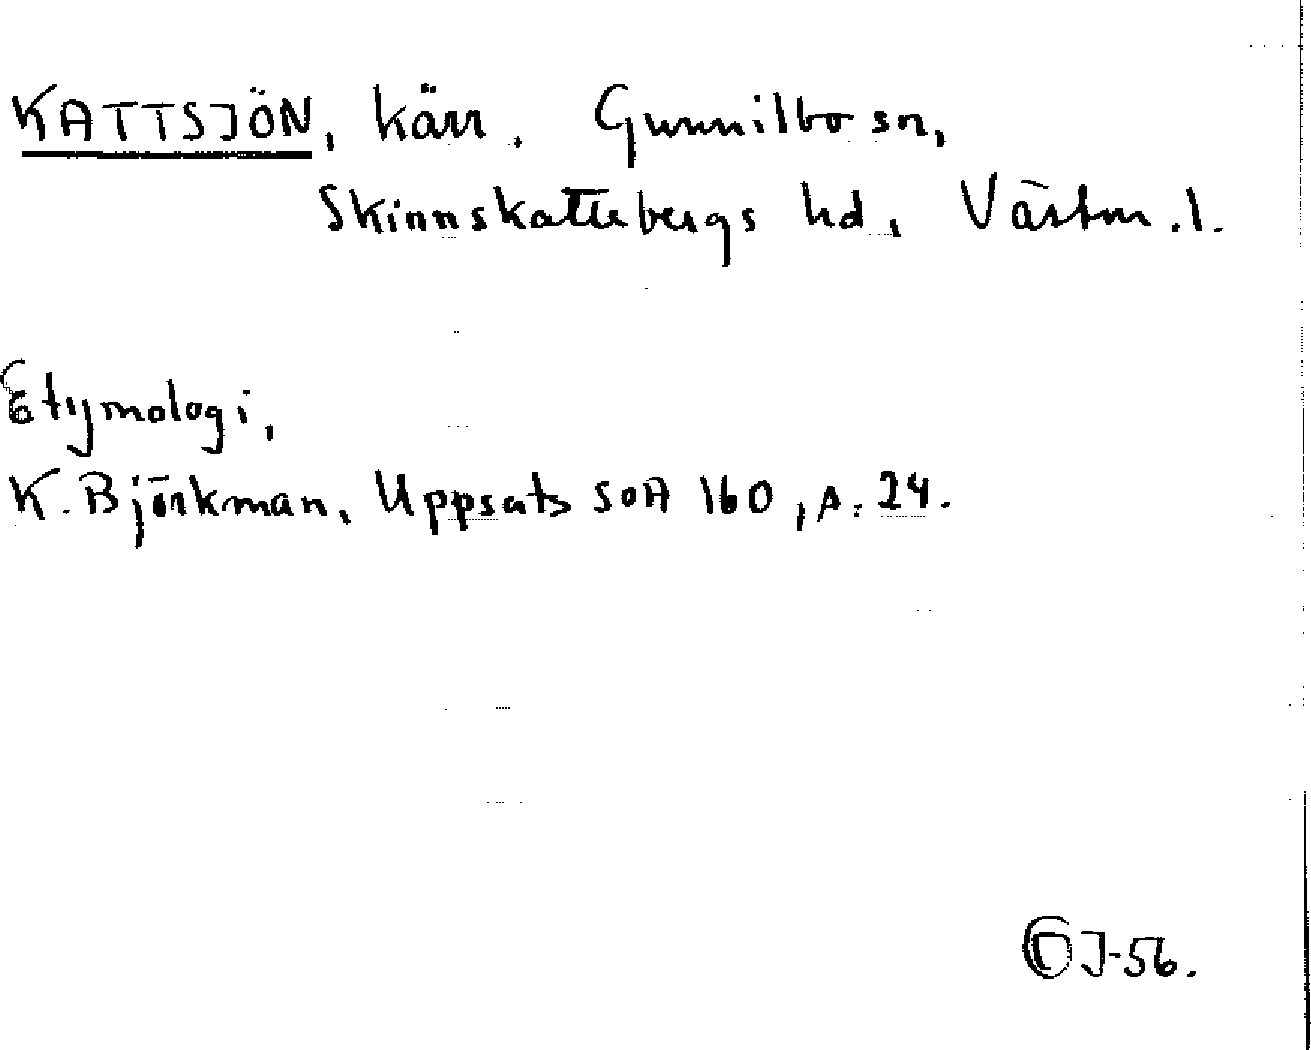 KATTSJÖN, kärr. Gunnilbo sn,
Skinnskattebergs hd, Västm.l.
Etymologi,
K. Björkman, Uppsats SOA 160, s. 24.
J-56.